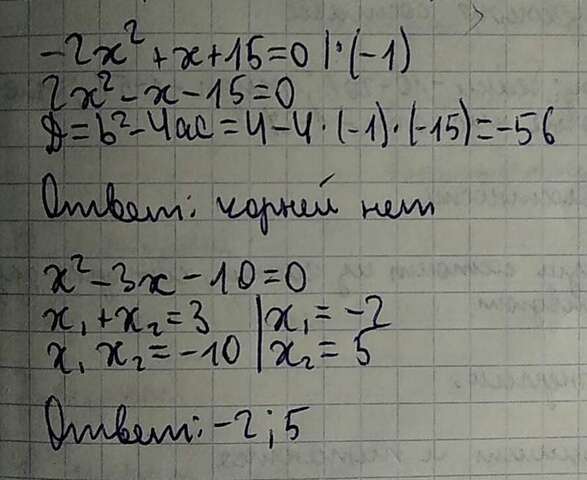 -2x²+x+15=0 |·(-1)
2x²-x-15=0
D=b²-4ac=4-4·(-1)·(-15)=-56
Ответ: корней нет
x²-3x-10=0
x₁+x₂=3 | x₁=-2
x₁x₂=-10 | x₂=5
Ответ: -2; 5